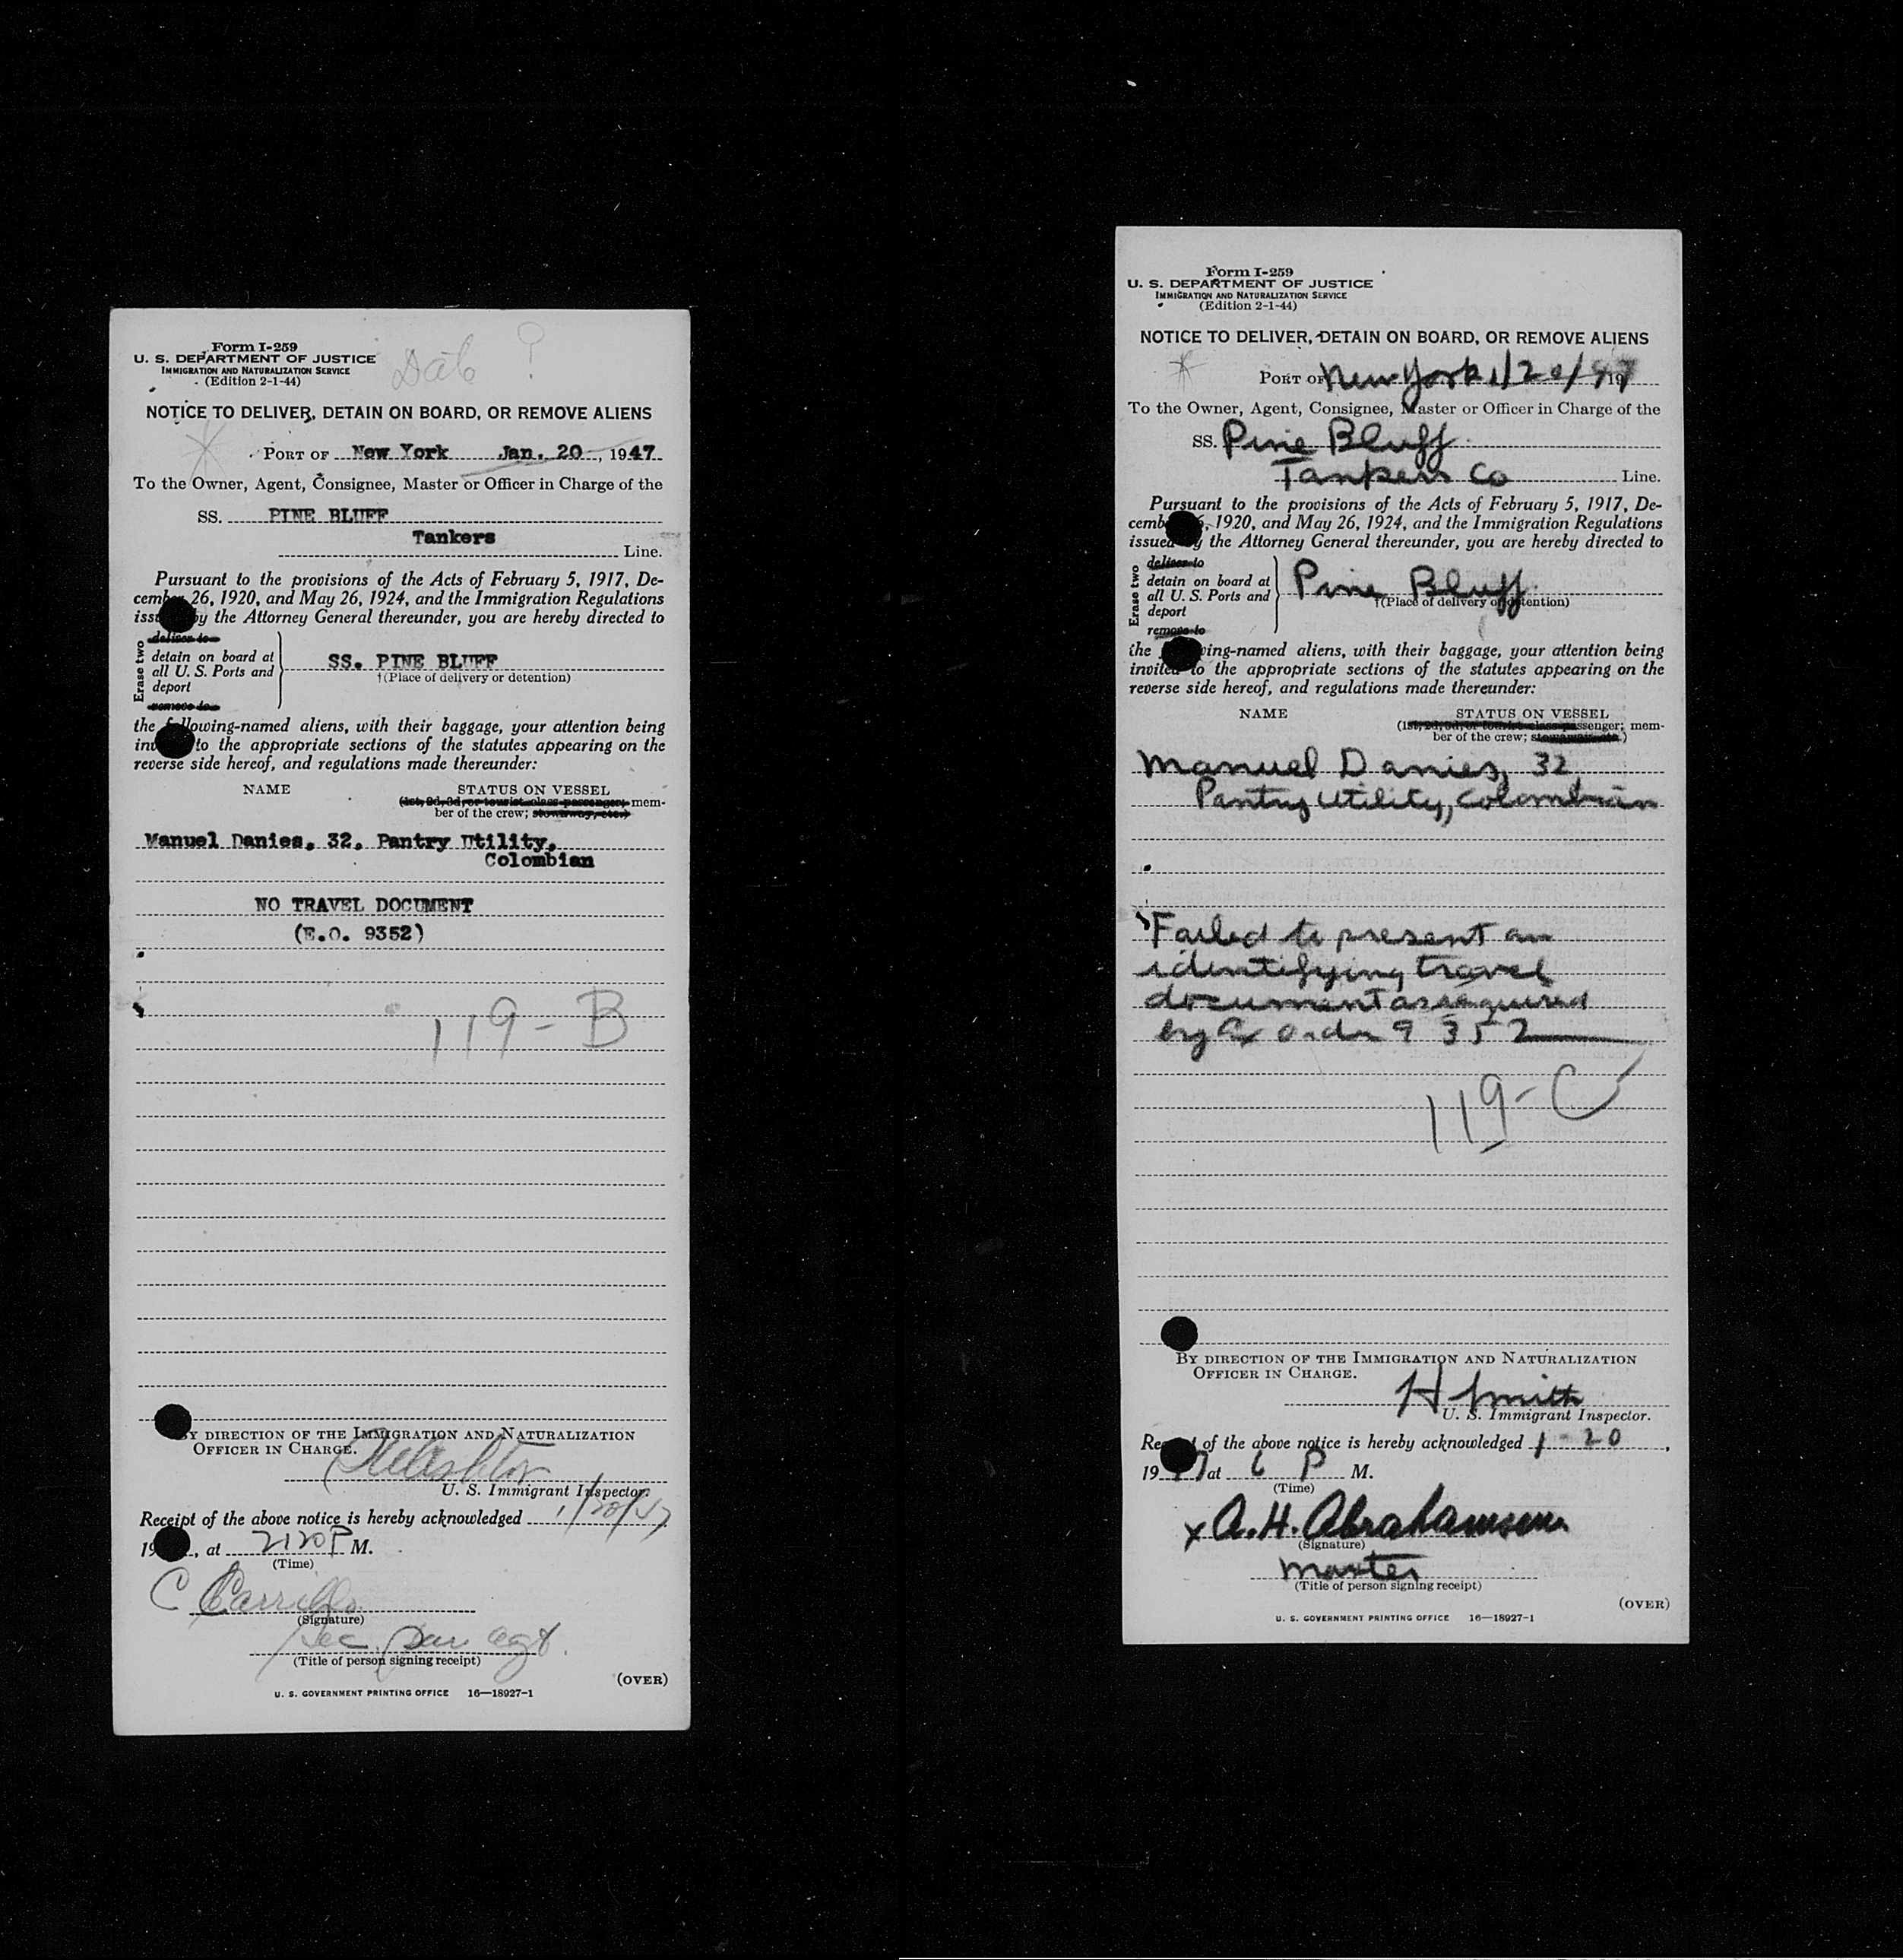 Form I-259
U. S. DEPARTMENT OF JUSTICE
IMMIGRATION AND NATURALIZATION SERVICE
(Edition 2-1-44)
Date ?
NOTICE TO DELIVER, DETAIN ON BOARD, OR REMOVE ALIENS
PORT OF New York Jan. 20, 1947
To the Owner, Agent, Consignee, Master or Officer in Charge of the
SS. PINE BLUFF
Tankers
Line.
Pursuant to the provisions of the Acts of February 5, 1917, De-
cember 26, 1920, and May 26, 1924, and the Immigration Regulations
issued by the Attorney General thereunder, you are hereby directed to
Erase two
deliver to
detain on board at
all U. S. Ports and
deport
remove to
SS. PINE BLUFF
†(Place of delivery or detention)
the following-named aliens, with their baggage, your attention being
invited to the appropriate sections of the statutes appearing on the
reverse side hereof, and regulations made thereunder:
NAME STATUS ON VESSEL
(1st, 2d, 3d, or tourist class passenger; mem-
ber of the crew; stowaway, etc.)
Manuel Danies, 32, Pantry Utility,
Colombian
NO TRAVEL DOCUMENT
(E.O. 9352)
119-B
BY DIRECTION OF THE IMMIGRATION AND NATURALIZATION
OFFICER IN CHARGE.
U. S. Immigrant Inspector.
Receipt of the above notice is hereby acknowledged 1/20/47
19, at 2120P M.
(Time)
C Carrillo
(Signature)
agt.
(Title of person signing receipt)
(OVER)
U. S. GOVERNMENT PRINTING OFFICE 16—18927-1
Form I-259
U. S. DEPARTMENT OF JUSTICE
IMMIGRATION AND NATURALIZATION SERVICE
(Edition 2-1-44)
NOTICE TO DELIVER, DETAIN ON BOARD, OR REMOVE ALIENS
PORT OF New York 1/20/47 19
To the Owner, Agent, Consignee, Master or Officer in Charge of the
SS. Pine Bluff
Tankers Co Line.
Pursuant to the provisions of the Acts of February 5, 1917, De-
cember 26, 1920, and May 26, 1924, and the Immigration Regulations
issued by the Attorney General thereunder, you are hereby directed to
Erase two
deliver to
detain on board at
all U. S. Ports and
deport
remove to
Pine Bluff
†(Place of delivery or detention)
the following-named aliens, with their baggage, your attention being
invited to the appropriate sections of the statutes appearing on the
reverse side hereof, and regulations made thereunder:
NAME STATUS ON VESSEL
(1st, 2d, 3d, or tourist class passenger; mem-
ber of the crew; stowaway, etc.)
Manuel Danies, 32,
Pantry Utility, Colombian
Failed to present an
identifying travel
document as required
by Ex Order 9352
119-C
BY DIRECTION OF THE IMMIGRATION AND NATURALIZATION
OFFICER IN CHARGE.
H Smith
U. S. Immigrant Inspector.
Receipt of the above notice is hereby acknowledged 1-20,
1947 at 6 P M.
(Time)
x A. H. Abrahamsen
(Signature)
Master
(Title of person signing receipt)
(OVER)
U. S. GOVERNMENT PRINTING OFFICE 16—18927-1